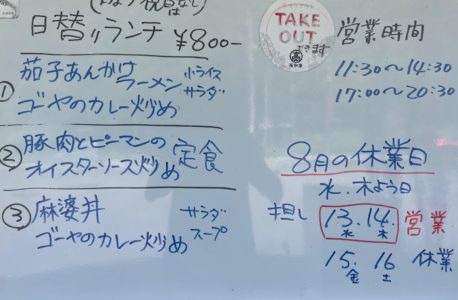 日替りランチ ¥800-
① 茄子あんかけラーメン 小ライス サラダ
ゴーヤのカレー炒め
② 豚肉とピーマンの
オイスターソース炒め 定食
③ 麻婆丼 サラダ
ゴーヤのカレー炒め スープ
TAKE
OUT
できます
営業時間
11:30〜14:30
17:00〜20:30
8月の休業日
水.木よう日
担し 13.14. 営業
水 木
15. 16 休業
金 土